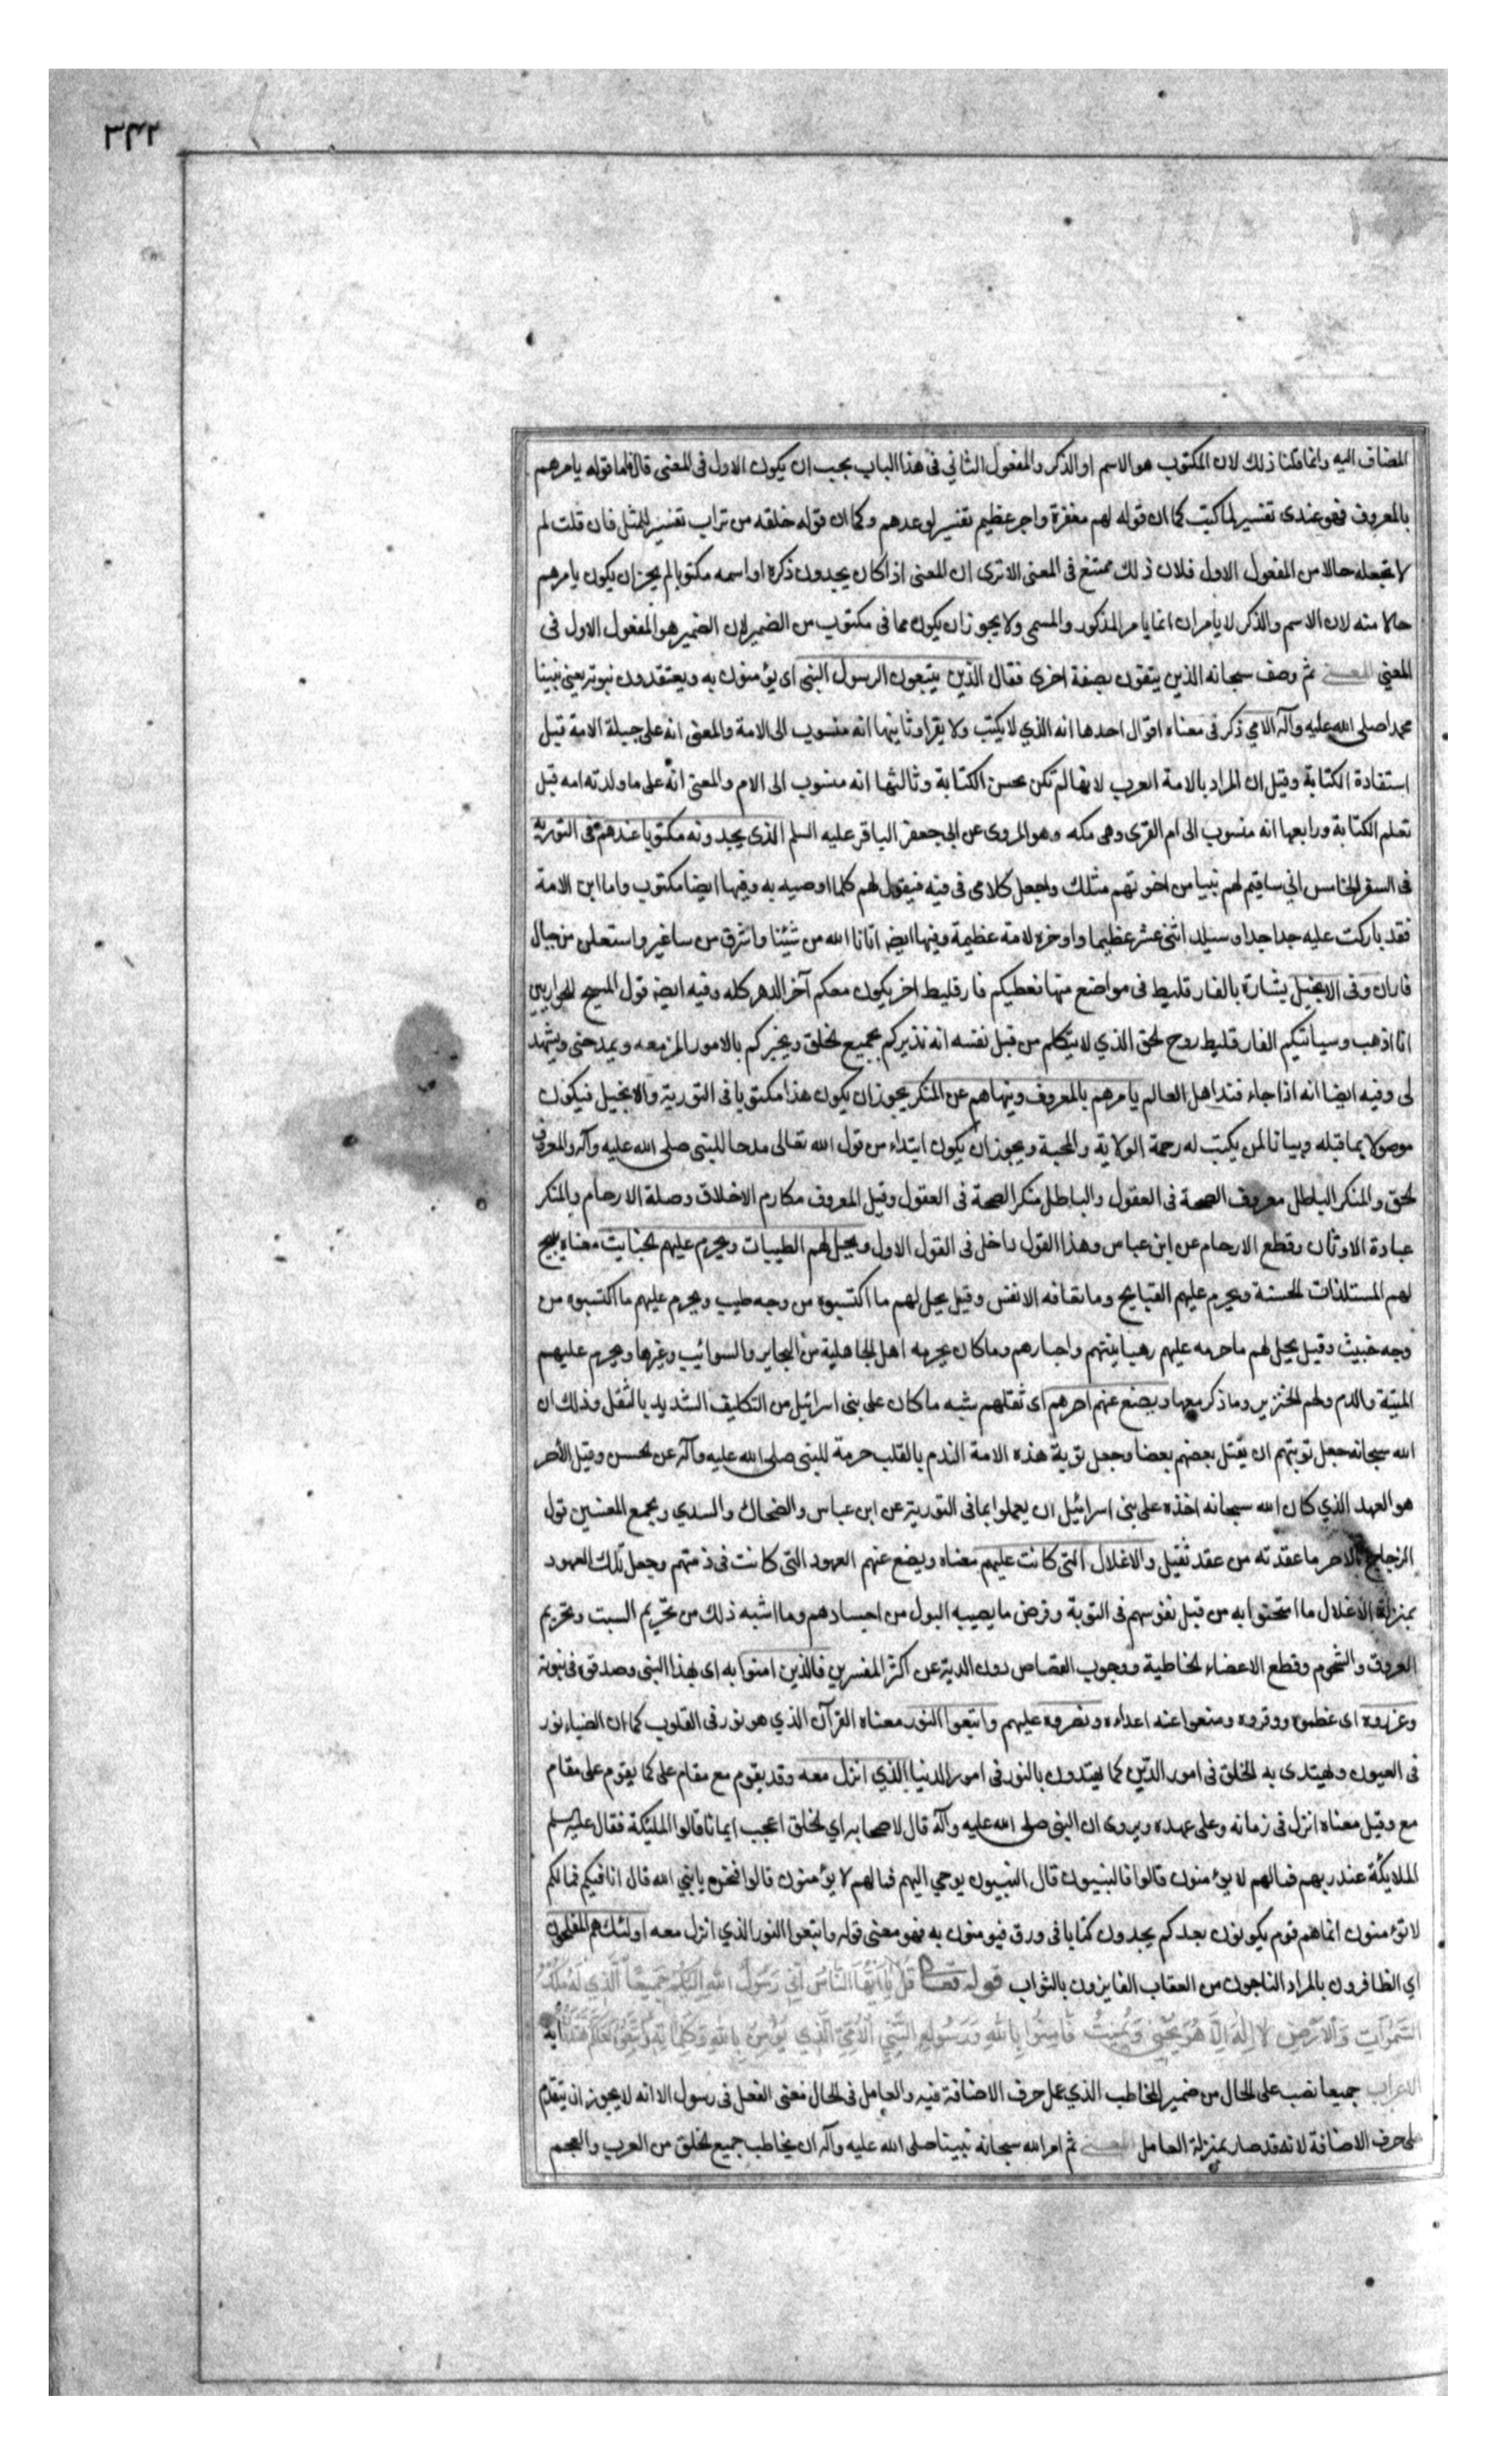 ٣٤٢
المضاف اليه وانما قلنا ذلك لان المكتوب هو الاسم او الذكر والمفعول الثاني في هذا الباب يجب ان يكون الاول في المعنى قال فاما قوله يامرهم
بالمعروف فهو عندى تفسير لما كتب كما ان قوله لهم مغفرة واجر عظيم تفسير لوعدهم وكما ان قوله خلقه من تراب تفسير للمثل فان قلت لم
لا تجعله حالا من المفعول الاول فلان ذلك ممتنع في المعنى الا ترى ان المعنى اذا كان يجدون ذكره او اسمه مكتوبا لم يجز ان يكون يامرهم
حالا منه لان الاسم والذكر لا يامران انما يامر المذكور والمسمى ولا يجوز ان يكون مما في مكتوب من الضمير لان الضمير هو المفعول الاول في
المعنى المعنى ثم وصف سبحانه الذين يتقون بصفة اخرى فقال الذين يتبعون الرسول النبى اى يؤمنون به ويعتقدون نبوته يعنى نبينا
محمدا صلى الله عليه وآله الامي ذكر في معناه اقوال احدها انه الذي لا يكتب ولا يقرا وثانيها انه منسوب الى الامة والمعنى انه على جبلة الامة قبل
استفادة الكتابة وقيل ان المراد بالامة العرب لانها لم تكن تحسن الكتابة وثالثها انه منسوب الى الام والمعنى انه على ما ولدته امه قبل
تعلم الكتابة ورابعها انه منسوب الى ام القرى وهى مكه وهو المروى عن ابى جعفر الباقر عليه السلم الذى يجدونه مكتوبا عندهم في التورية
في السفر الخامس اني ساقيم لهم نبيا من اخوتهم مثلك واجعل كلامى في فيه فيقول لهم كلما اوصيه به وفيها ايضا مكتوب واما ابن الامة
فقد باركت عليه جدا جدا وسيلد اثنى عشر عظيما واوخره لامة عظيمة وفيها ايضا اتانا الله من سينا واشرق من ساغير واستعلن من جبال
فاران وفي الانجيل بشارة بالفارقليط في مواضع منها نعطيكم فارقليط اخر يكون معكم آخر الدهر كله وفيه ايضا قول المسيح للحواريين
انا اذهب وسياتيكم الفارقليط روح الحق الذي لا يتكلم من قبل نفسه انه نذيركم بجميع الخلق ويخبركم بالامور المزمعه ويمدحنى ويشهد
لى وفيه ايضا انه اذا جاء فند اهل العالم يامرهم بالمعروف وينهاهم عن المنكر يجوز ان يكون هذا مكتوبا في التورية والانجيل فيكون
موصولا بما قبله وبيانا لمن يكتب له رحمة الولاية والمحبة ويجوز ان يكون ابتداء من قول الله تعالى مدحا للنبى صلى الله عليه وآله والمعروف
الحق والمنكر الباطل معروف الصحة في العقول والباطل منكر الصحة في العقول وقيل المعروف مكارم الاخلاق وصلة الارحام والمنكر
عبادة الاوثان وقطع الارحام عن ابن عباس وهذا القول داخل في القول الاول ويحل لهم الطيبات ويحرم عليهم الخبايث معناه يبيح
لهم المستلذات الحسنة ويحرم عليهم القبايح وما تعافه الانفس وقيل يحل لهم ما اكتسبوه من وجه طيب ويحرم عليهم ما اكتسبوه من
وجه خبيث وقيل يحل لهم ما حرمه عليهم رهبانيتهم واحبارهم وما كان يحرمه اهل الجاهلية من البحاير والسوائب وغيرها ويحرم عليهم
الميتة والدم ولحم الخنزير وما ذكر معها ويضع عنهم اصرهم اى ثقلهم شبه ما كان على بنى اسرائيل من التكليف الشديد بالثقل وذلك ان
الله سبحانه جعل توبتهم ان يقتل بعضهم بعضا وجعل توبة هذه الامة الندم بالقلب حرمة للنبى صلى الله عليه وآله عن الحسن وقيل الاصر
هو العهد الذي كان الله سبحانه اخذه على بنى اسرائيل ان يعملوا بما في التورية عن ابن عباس والضحاك والسدي ويجمع المعنيين قول
الزجاج الاصر ما عقدته من عقد ثقيل والاغلال التى كانت عليهم معناه ويضع عنهم العهود التى كانت في ذمتهم وجعل تلك العهود
بمنزلة الاغلال ما امتحنوا به من قبل نفوسهم في التوبة وقرض ما يصيبه البول من اجسادهم وما اشبه ذلك من تحريم السبت وتحريم
العروق والشحوم وقطع الاعضاء الخاطية ووجوب القصاص دون الدية عن اكثر المفسرين فالذين امنوا به اى بهذا النبى وصدقوه في نبوته
وعزروه اى عظموه ووقروه ومنعوا عنه اعداءه ونصروه عليهم واتبعوا النور معناه القرآن الذي هو نور في القلوب كما ان الضياء نور
في العيون ويهتدى به الخلق في امور الدين كما يهتدون بالنور في امور الدنيا الذي انزل معه وقد يقوم مع مقام على كما يقوم على مقام
مع وقيل معناه انزل في زمانه وعلى عهده ويروى ان النبى صلى الله عليه وآله قال لاصحابه اي الخلق اعجب ايمانا قالوا المليكة فقال عليه السلم
الملايكة عند ربهم فما لهم لا يؤمنون قالوا فالنبيون قال النبيون يوحي اليهم فما لهم لا يؤمنون قالوا فنحن يا نبي الله قال انا فيكم فما لكم
لا تؤمنون انما هم قوم يكونون بعدكم يجدون كتابا في ورق فيومنون به فهو معنى قوله واتبعوا النور الذي انزل معه اولئك هم المفلحون
اي الظافرون بالمراد الناجون من العقاب الفايزون بالثواب قوله تعالى قُل يا اَيُّهَا النَّاسُ اِنّي رَسُولُ اللهِ اِلَيْكُم جَميعًا الَّذي لَهُ مُلكُ
السَّمواتِ وَالاَرْضِ لا اِلهَ اِلّا هُوَ يُحْيى وَيُميتُ فَامِنُوا بِاللهِ وَرَسُولِهِ النَّبِيِّ الاُمِّيِّ الَّذي يُؤْمِنُ بِاللهِ وَكَلِماتِهِ وَاتَّبِعُوهُ لَعَلَّكُم تَهْتَدُونَ آية
الاعراب جميعا نصب على الحال من ضمير المخاطب الذي عمل حرف الاضافة فيه والعامل في الحال معنى الفعل في رسول الا انه لا يجوز ان يتقدم
على حرف الاضافة لانه قد صار بمنزلة العامل المعنى ثم امر الله سبحانه نبينا صلى الله عليه وآله ان يخاطب جميع الخلق من العرب والعجم